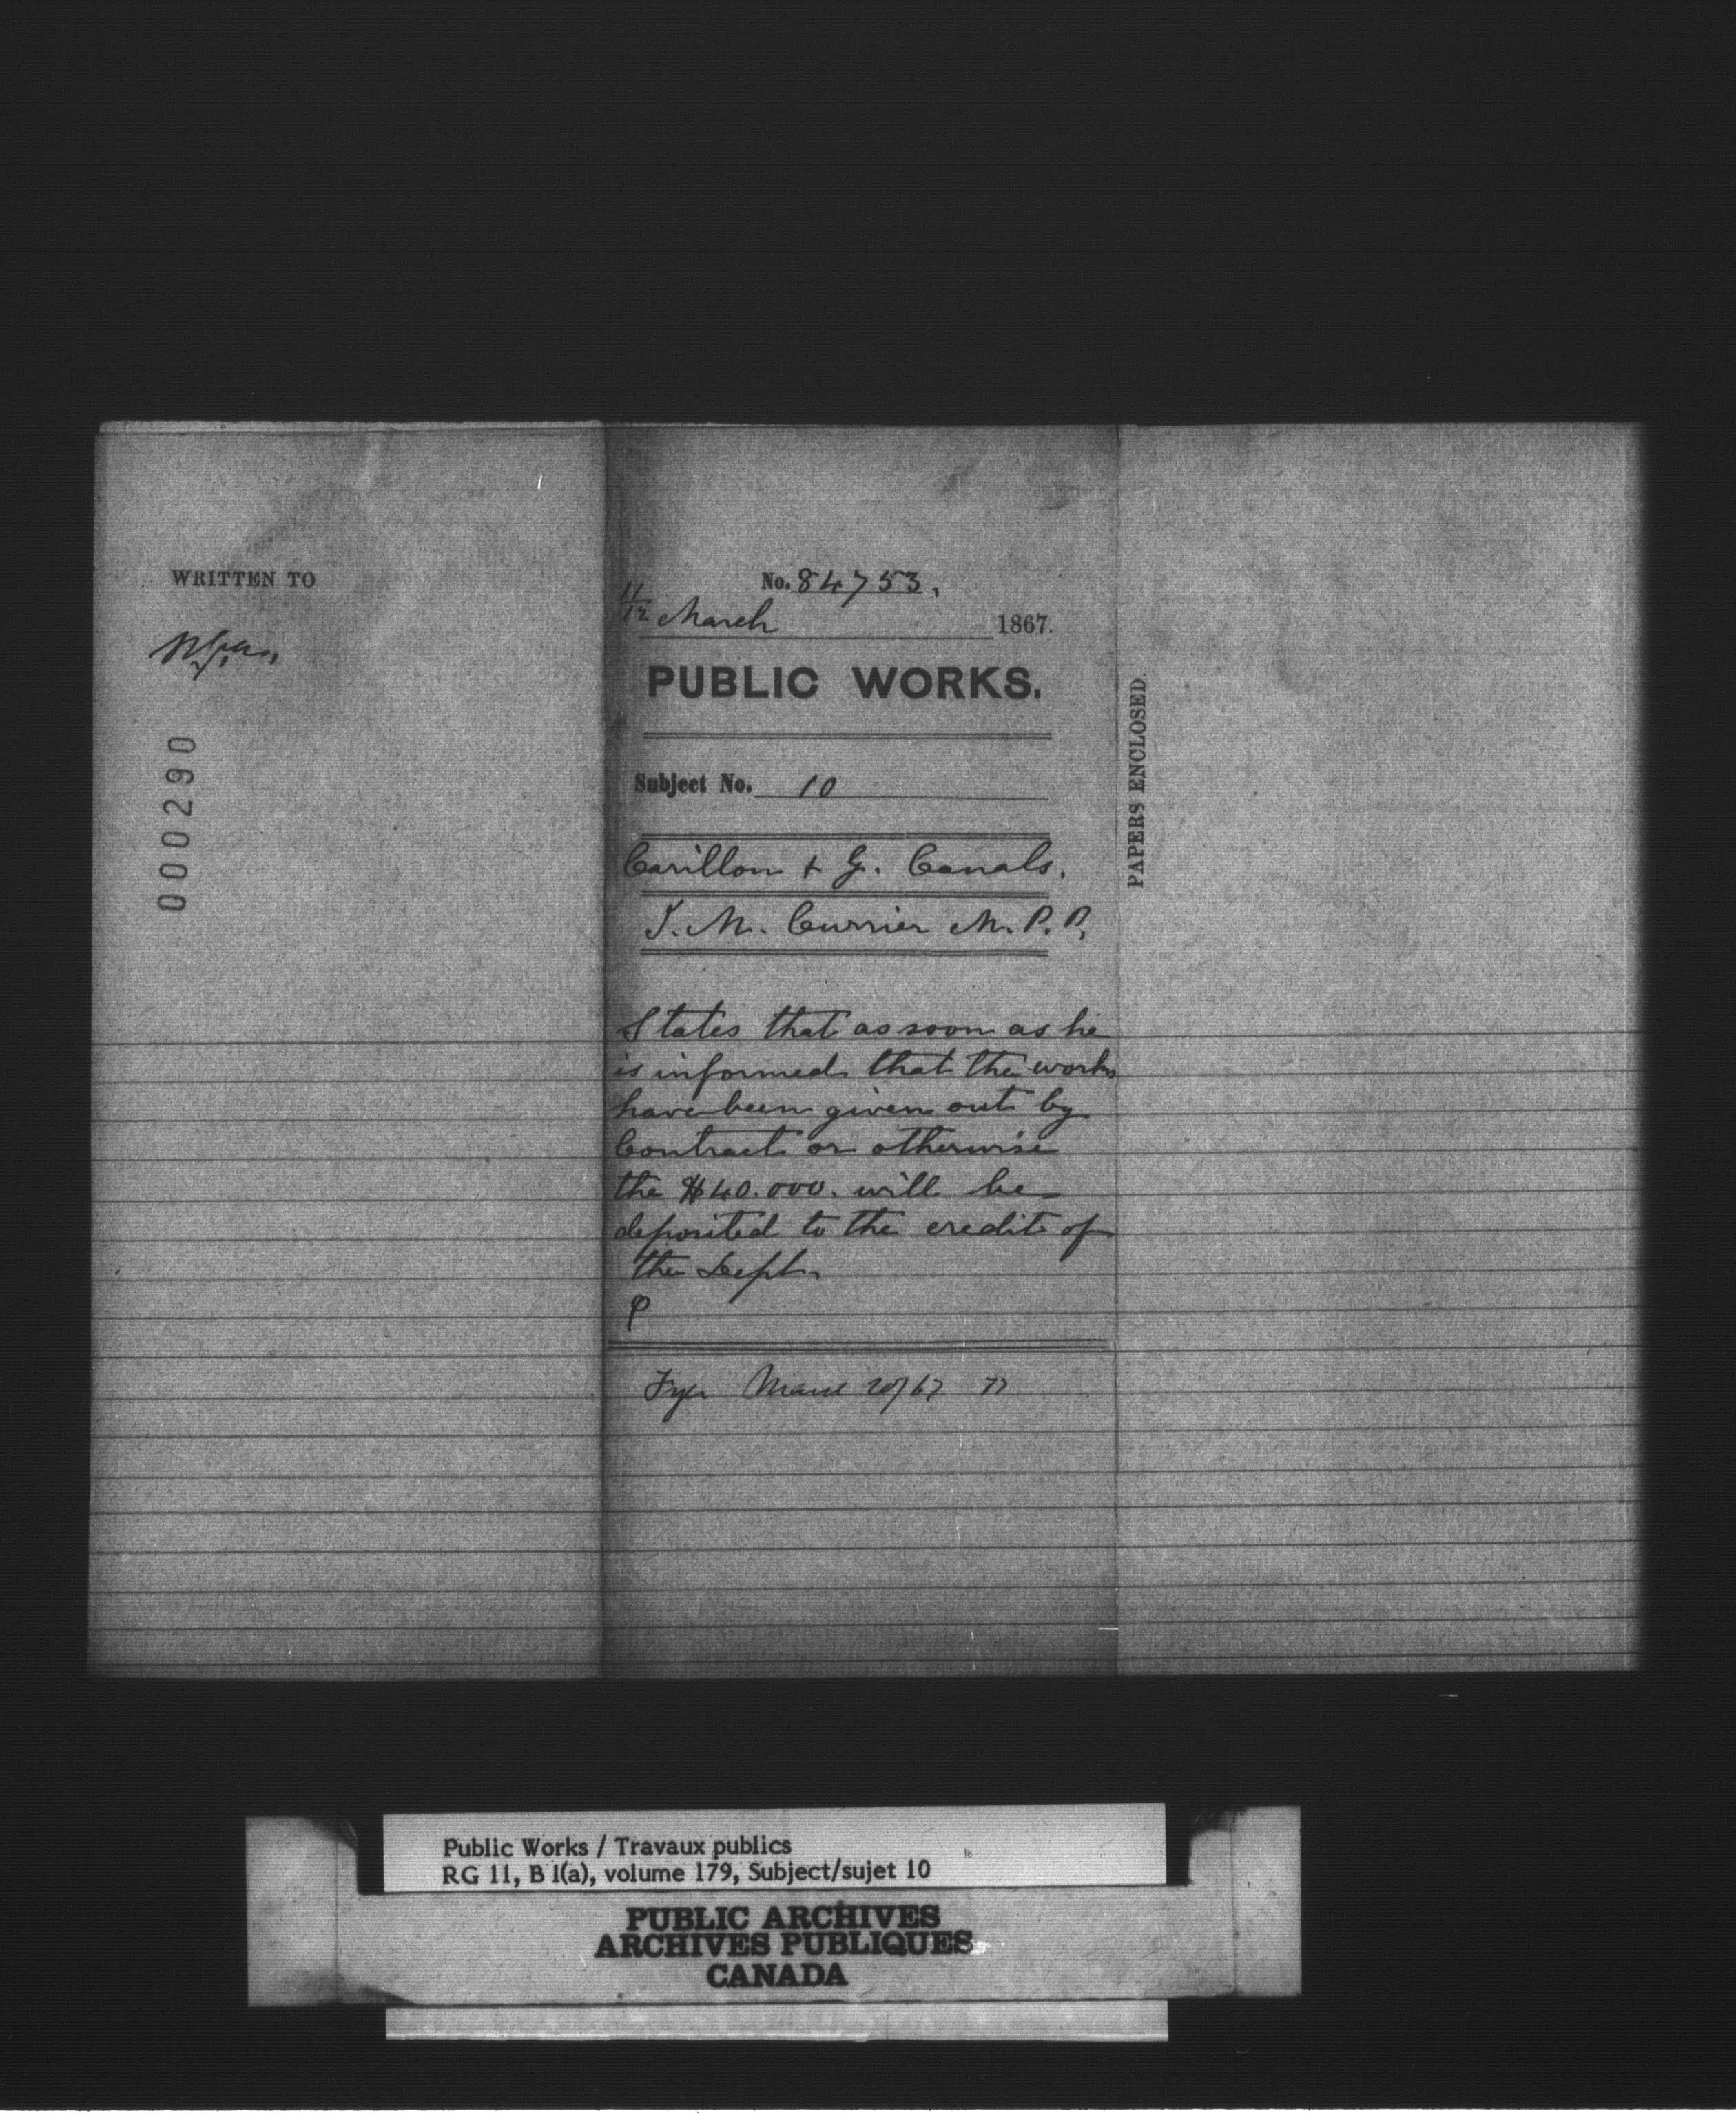 WRITTEN TO
000290
No. 84753.
11/12 March 1867.
PUBLIC WORKS.
Subject No. 10
Carillon + G. Canals.
J. M. Currier M. P. P.
States that as soon as he
is informed that the works
have been given out by
Contract or otherwise
the $40.000. will be
deposited to the credit of
the Dept.
March 20/67
PAPERS ENCLOSED.
Public Works / Travaux publics
RG 11, B 1(a), volume 179, Subject/sujet 10
PUBLIC ARCHIVES
ARCHIVES PUBLIQUES
CANADA